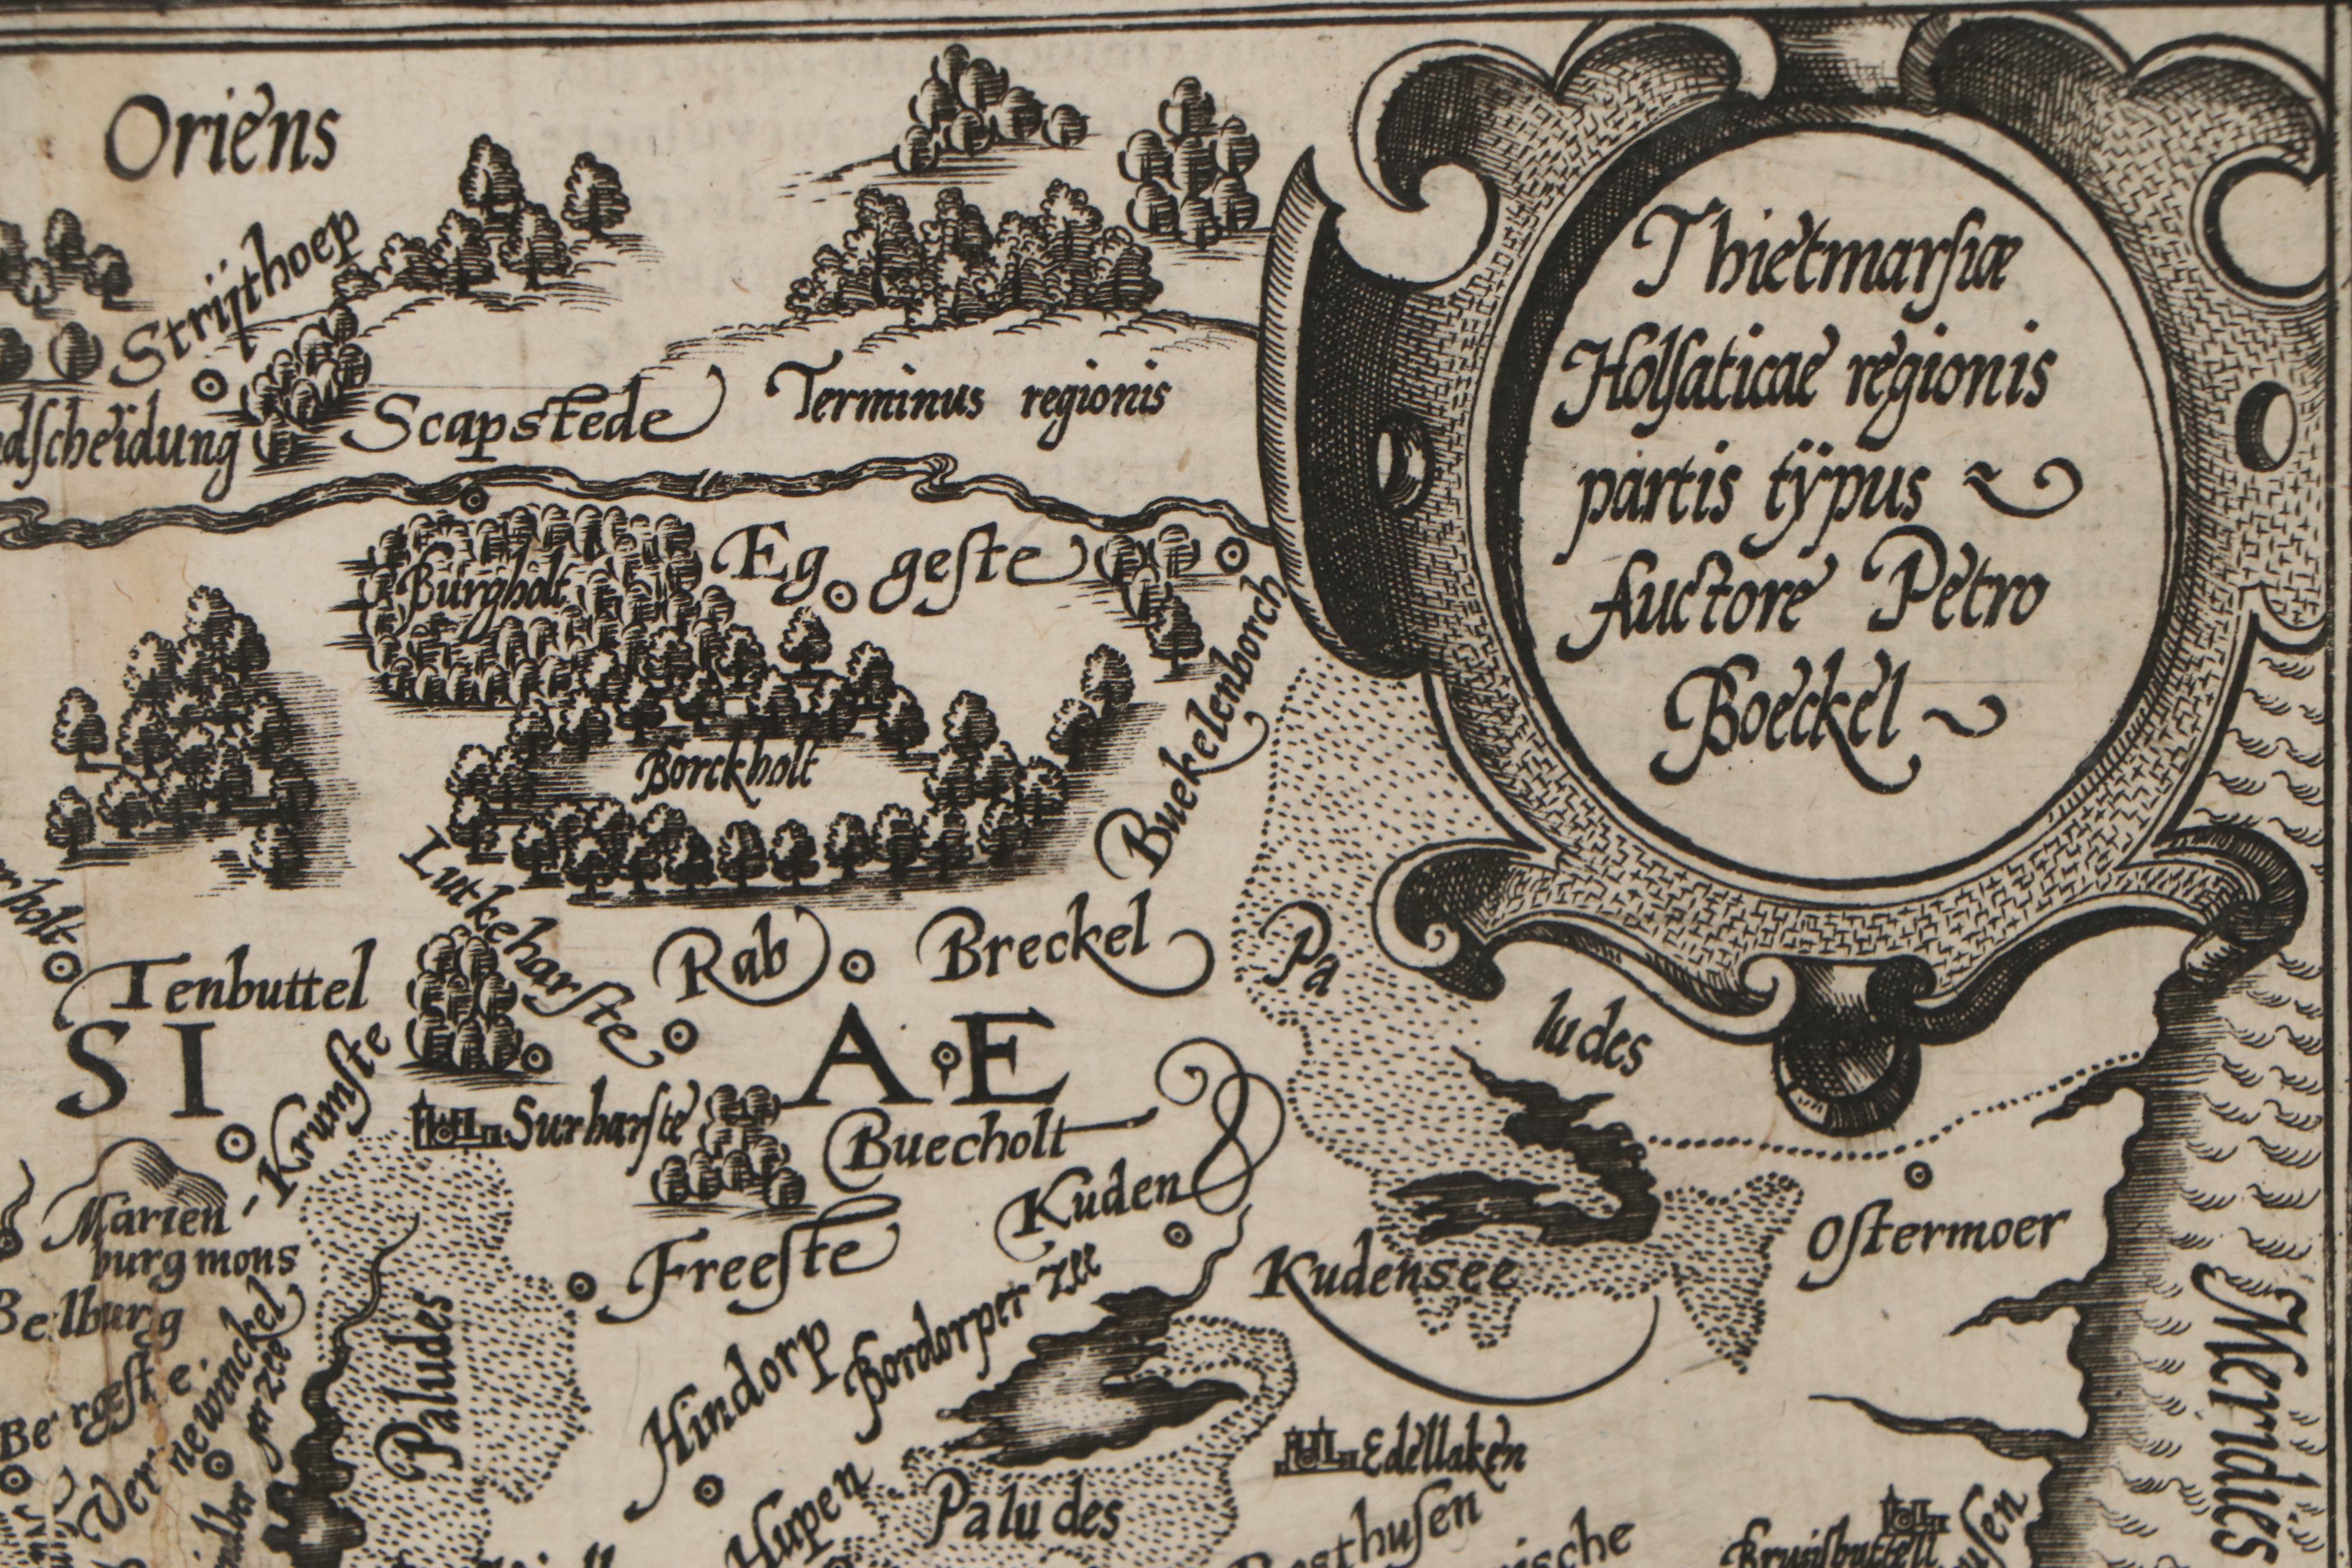 Oriens
Strijthoep
Scapstede
Terminus regionis
Thietmarsiæ
Holsaticae regionis
partis tÿpus
Auctore Petro
Boeckel
Burgholt
Eg geste
Buekelenborch
Borckholt
Lutkeharste
Rab
Breckel
Tenbuttel
SI
AE
Krumste
Surharste
Buecholt
Kuden
Pa
ludes
Marien
burg mons
Belburg
Freeste
Kudensee
Ostermoer
Hindorp
Bordorper zee
Paludes
Bergeste
Edellaken
Meridies
Hupen
Paludes